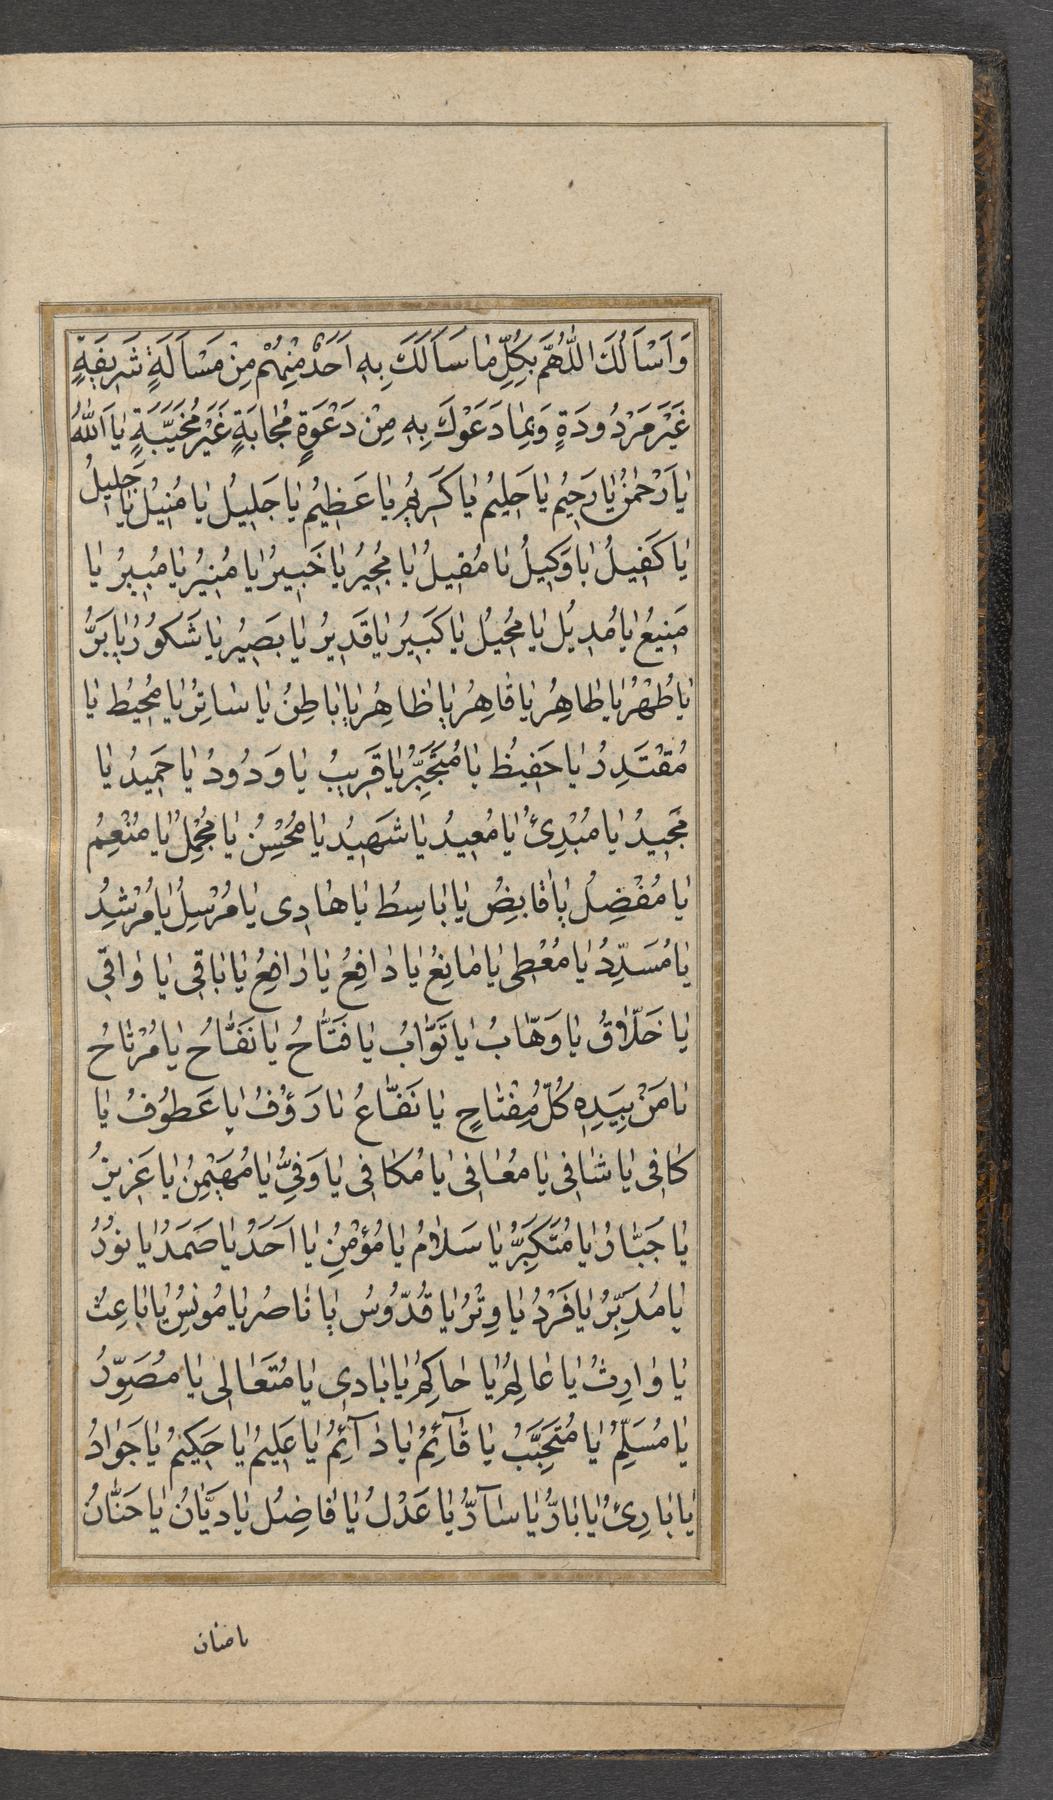 وَاَسْاَلُكَ اللّٰهُمَّ بِكُلِّ مٰا سَاَلَكَ بِهِ اَحَدٌ مِنْهُمْ مِنْ مَسْاَلَةٍ شَرِيفَةٍ
غَيْرَ مَرْدُودَةٍ وَبِمٰا دَعَوْكَ بِهِ مِنْ دَعْوَةٍ مُجٰابَةٍ غَيْرَ مُخَيَّبَةٍ يٰا اَللّٰهُ
يٰا رَحْمٰنُ يٰا رَحِيمُ يٰا حَلِيمُ يٰا كَرِيمُ يٰا عَظِيمُ يٰا جَلِيلُ يٰا مُنِيلُ يٰا جَلِيلُ
يٰا كَفِيلُ يٰا وَكِيلُ يٰا مُقِيلُ يٰا مُجِيرُ يٰا خَبِيرُ يٰا مُنِيرُ يٰا مُبِيرُ يٰا
مَنِيعُ يٰا مُدِيلُ يٰا مُحِيلُ يٰا كَبِيرُ يٰا قَدِيرُ يٰا بَصِيرُ يٰا شَكُورُ يٰا بَرُّ
يٰا طُهْرُ يٰا طٰاهِرُ يٰا قٰاهِرُ يٰا ظٰاهِرُ يٰا بٰاطِنُ يٰا سٰاتِرُ يٰا مُحِيطُ يٰا
مُقْتَدِرُ يٰا حَفِيظُ يٰا مُتَجَبِّرُ يٰا قَرِيبُ يٰا وَدُودُ يٰا حَمِيدُ يٰا
مَجِيدُ يٰا مُبْدِئُ يٰا مُعِيدُ يٰا شَهِيدُ يٰا مُحْسِنُ يٰا مُجْمِلُ يٰا مُنْعِمُ
يٰا مُفْضِلُ يٰا قٰابِضُ يٰا بٰاسِطُ يٰا هٰادِى يٰا مُرْسِلُ يٰا مُرْشِدُ
يٰا مُسَدِّدُ يٰا مُعْطِى يٰا مٰانِعُ يٰا دٰافِعُ يٰا رٰافِعُ يٰا بٰاقِى يٰا وٰاقِى
يٰا خَلّٰاقُ يٰا وَهّٰابُ يٰا تَوّٰابُ يٰا فَتّٰاحُ يٰا نَفّٰاحُ يٰا مُرْتٰاحُ
يٰا مَنْ بِيَدِهِ كُلُّ مِفْتٰاحٍ يٰا نَفّٰاعُ يٰا رَؤُفُ يٰا عَطُوفُ يٰا
كٰافِى يٰا شٰافِى يٰا مُعٰافِى يٰا مُكٰافِى يٰا وَفِىُّ يٰا مُهَيْمِنُ يٰا عَزِيزُ
يٰا جَبّٰارُ يٰا مُتَكَبِّرُ يٰا سَلٰامُ يٰا مُؤْمِنُ يٰا اَحَدُ يٰا صَمَدُ يٰا نُورُ
يٰا مُدَبِّرُ يٰا فَرْدُ يٰا وِتْرُ يٰا قُدُّوسُ يٰا نٰاصِرُ يٰا مُونِسُ يٰا بٰاعِثُ
يٰا وٰارِثُ يٰا عٰالِمُ يٰا حٰاكِمُ يٰا بٰادِى يٰا مُتَعٰالِى يٰا مُصَوِّرُ
يٰا مُسَلِّمُ يٰا مُتَحَبِّبُ يٰا قٰآئِمُ يٰا دٰآئِمُ يٰا عَلِيمُ يٰا حَكِيمُ يٰا جَوٰادُ
يٰا بٰارِئُ يٰا بٰارُّ يٰا سٰآرُّ يٰا عَدْلُ يٰا فٰاضِلُ يٰا دَيّٰانُ يٰا حَنّٰانُ
یا منان